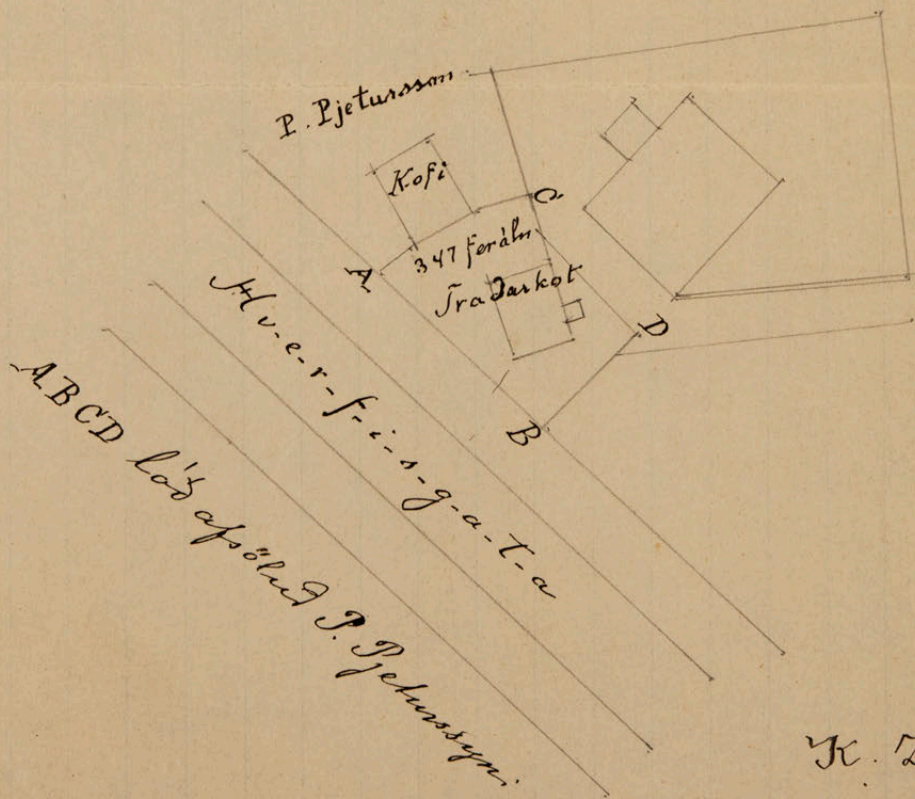 P. Pjetursson
Kofi
C
347 feráln
A
Traðarkot
D
B
H-v-e-r-f-i-s-g-a-t-a
ABCD lóð afsöluð P. Pjeturssyni.
K. Z